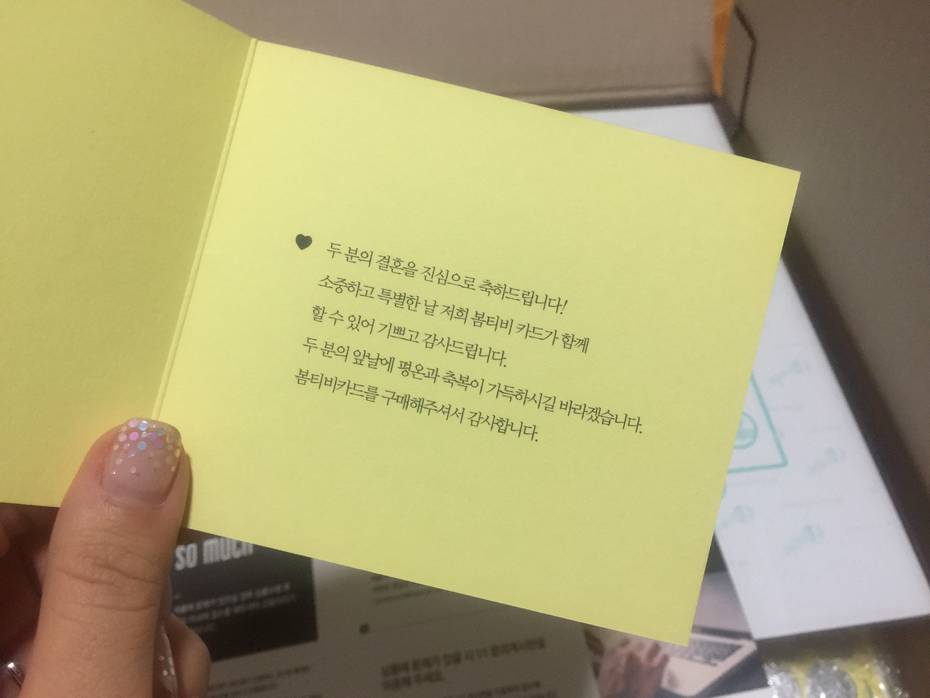 두 분의 결혼을 진심으로 축하드립니다!
소중하고 특별한 날 저희 봄티비 카드가 함께
할 수 있어 기쁘고 감사드립니다.
두 분의 앞날에 평온과 축복이 가득하시길 바라겠습니다.
봄티비카드를 구매해주셔서 감사합니다.
so much